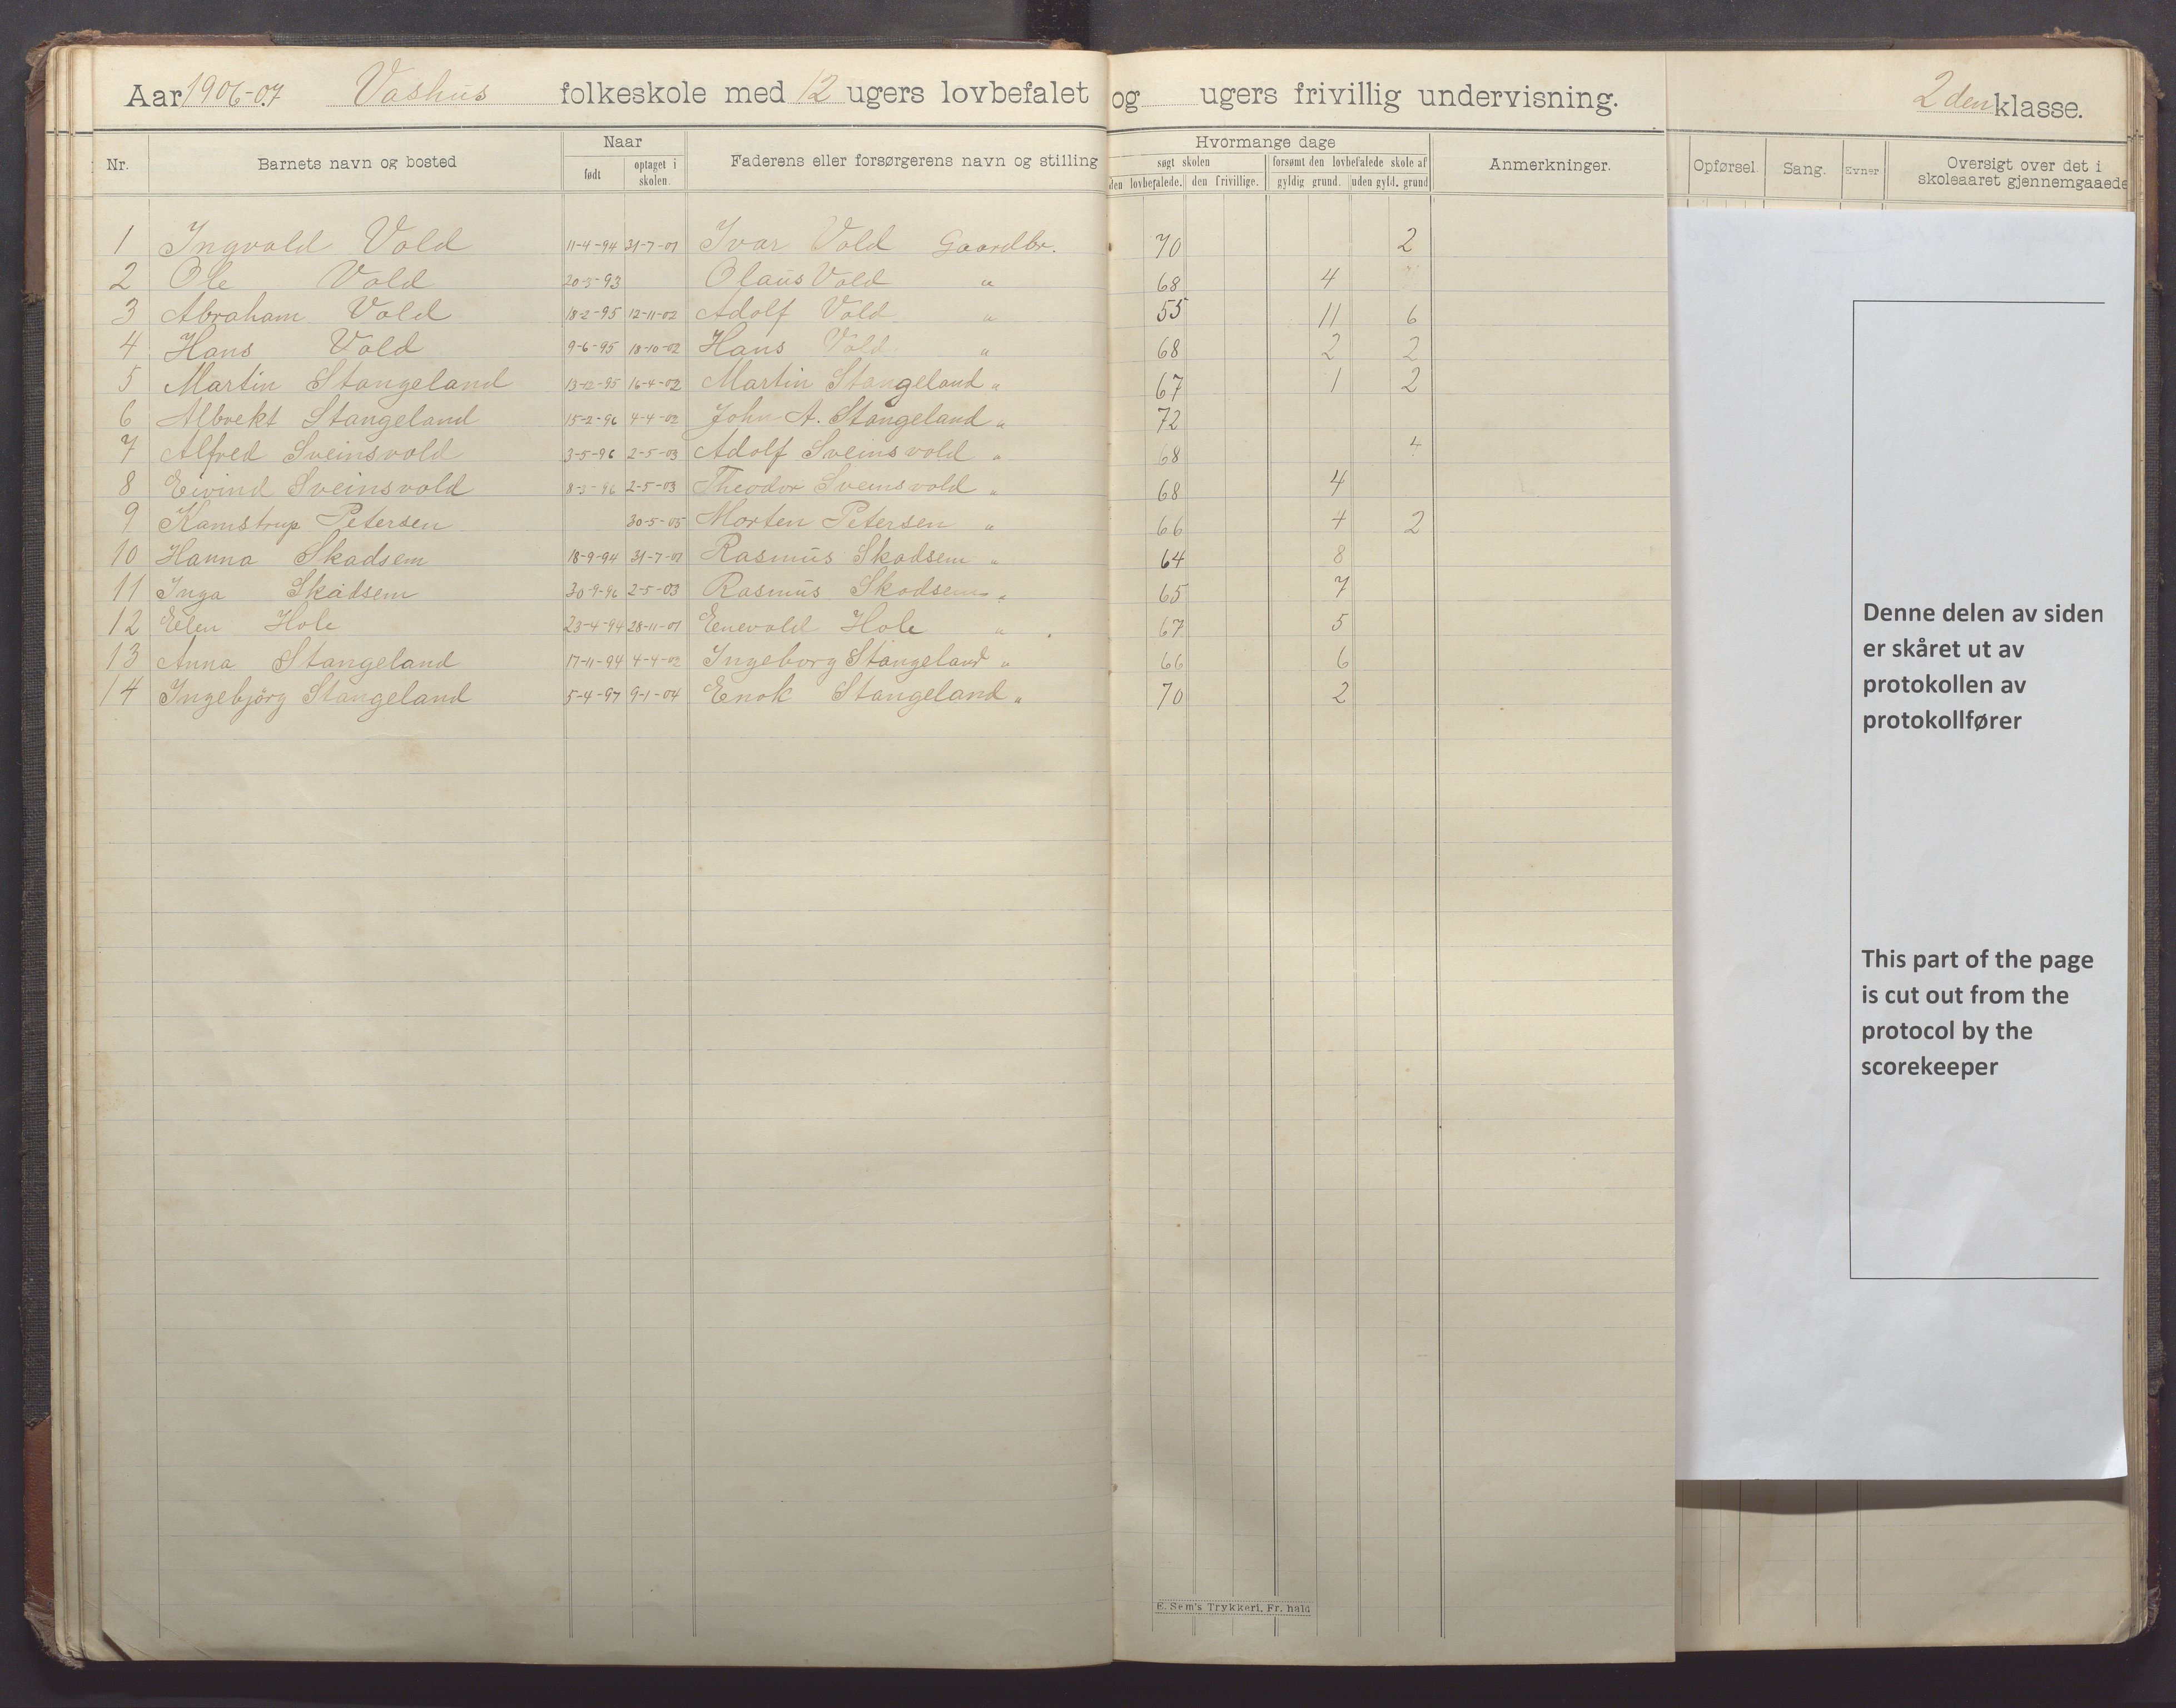 Aar 1906-07 Vashus folkeskole med 12 ugers lovbefalet og ugers frivillig undervisning. 2den klasse.
Nr. Barnets navn og bosted Naar født optaget i skolen. Faderens eller forsørgerens navn og stilling Hvormange dage søgt skolen den lovbefalede. den frivillige. forsømt den lovbefalede skole af gyldig grund. uden gyld. grund Anmerkninger. Opførsel. Sang. Evner Oversigt over det i skoleaaret gjennemgaaede
1 Ingvald Vold 11-4-94 31-7-01 Ivar Vold Gaardbr. 70 2
2 Ole Vold 20-5-93 Olaus Vold " 68 4
3 Abraham Vold 18-2-95 12-11-02 Adolf Vold " 55 11 6
4 Hans Vold 9-6-95 18-10-02 Hans Vold " 68 2 2
5 Martin Stangeland 13-12-95 16-4-02 Martin Stangeland " 67 1 2
6 Albrekt Stangeland 15-2-96 4-4-02 John A. Stangeland " 72
7 Alfred Sveinsvold 3-5-96 2-5-03 Adolf Sveinsvold " 68 4
8 Eivind Sveinsvold 8-3-96 2-5-03 Theodor Sveinsvold " 68 4
9 Kamstrup Petersen 30-5-05 Morten Petersen " 66 4 2
10 Hanna Skadsem 18-9-94 31-7-01 Rasmus Skadsem " 64 8
11 Inga Skadsem 30-9-96 2-5-03 Rasmus Skadsem " 65 7
12 Elen Hole 23-4-94 28-11-01 Enevald Hole " 67 5
13 Anna Stangeland 17-11-94 4-4-02 Ingeborg Stangeland " 66 6
14 Ingebjørg Stangeland 5-4-97 9-1-04 Enok Stangeland " 70 2
Denne delen av siden
er skåret ut av
protokollen av
protokollfører
This part of the page
is cut out from the
protocol by the
scorekeeper
E. Sem's Trykkeri, Fr. hald